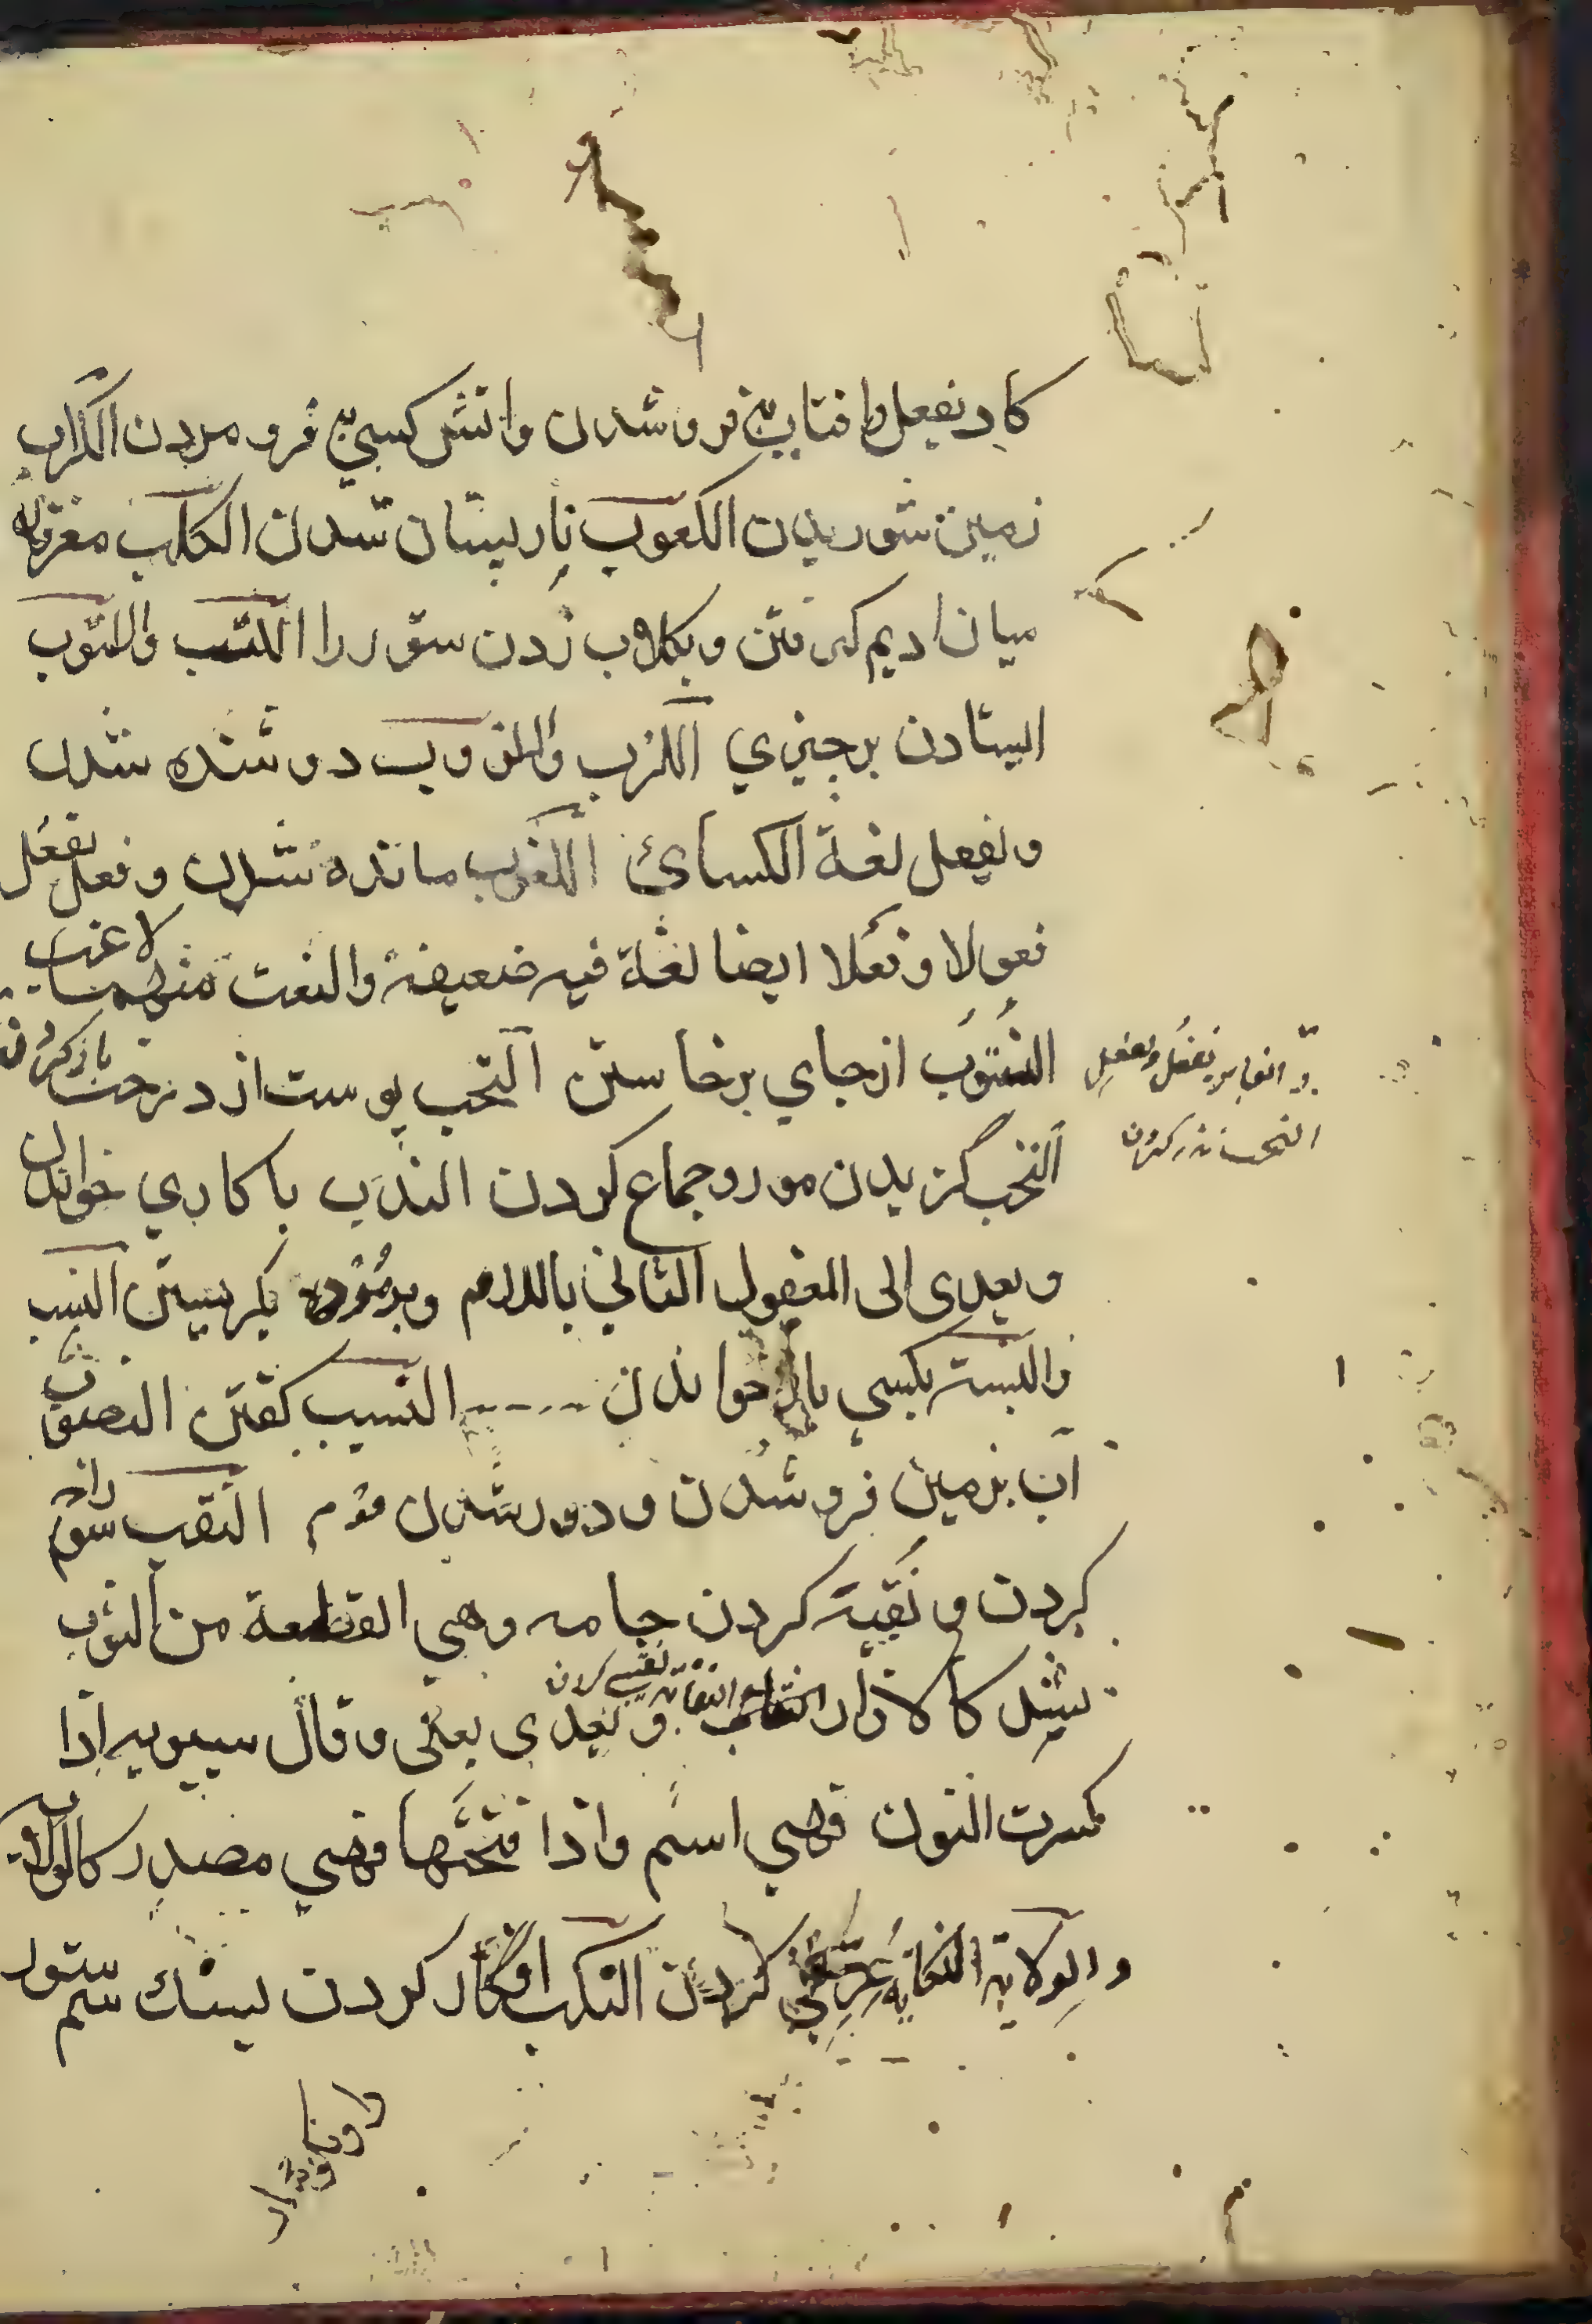 كاد يفعل وافتاب به فرو شدن واتش كسي به فرو مردن الكراب
زمين شوريدن الكعوب نار پستان شدن الكلب مغز قاله
ميان اديم كرفتن و بكلاب زدن ستور را اللتب واللتوب
ايستادن بر چيزي اللزب واللزوب دوشنده شدن
ويفعل لغة الكسائ اللغوب مانده شدن وفعل يفعل
فعولا وفعلا ايضا لغة فيه ضعيفة والنعت منهما لاغب
النتوب از جاي برخاستن النجب پوست از درخت باز كردن
والغابر يفعل ويفعل
النحب نذر كردن
النخب گزيدن مور و جماع كردن الندب با كاري خواندن
ويعدى الى المفعول الثاني باللام وبر مرده بگريستن النسب
والنسبة بكسي باز خواندن النسيب گفتن النضوب
آب بزمين فرو شدن و دور شدن قوم النقب سوراخ
كردن و نقبة كردن جامه وهي القطعة من الثوب
يشد كالازار النقابة نقيبي كردن و يعدى بعلى وقال سيبويه اذا
كسرت النون فهي اسم واذا فتحتها فهي مصدر كالولاية
والوكالة النكابة عريفي كردن النكب افگار كردن سنگ سم ستور